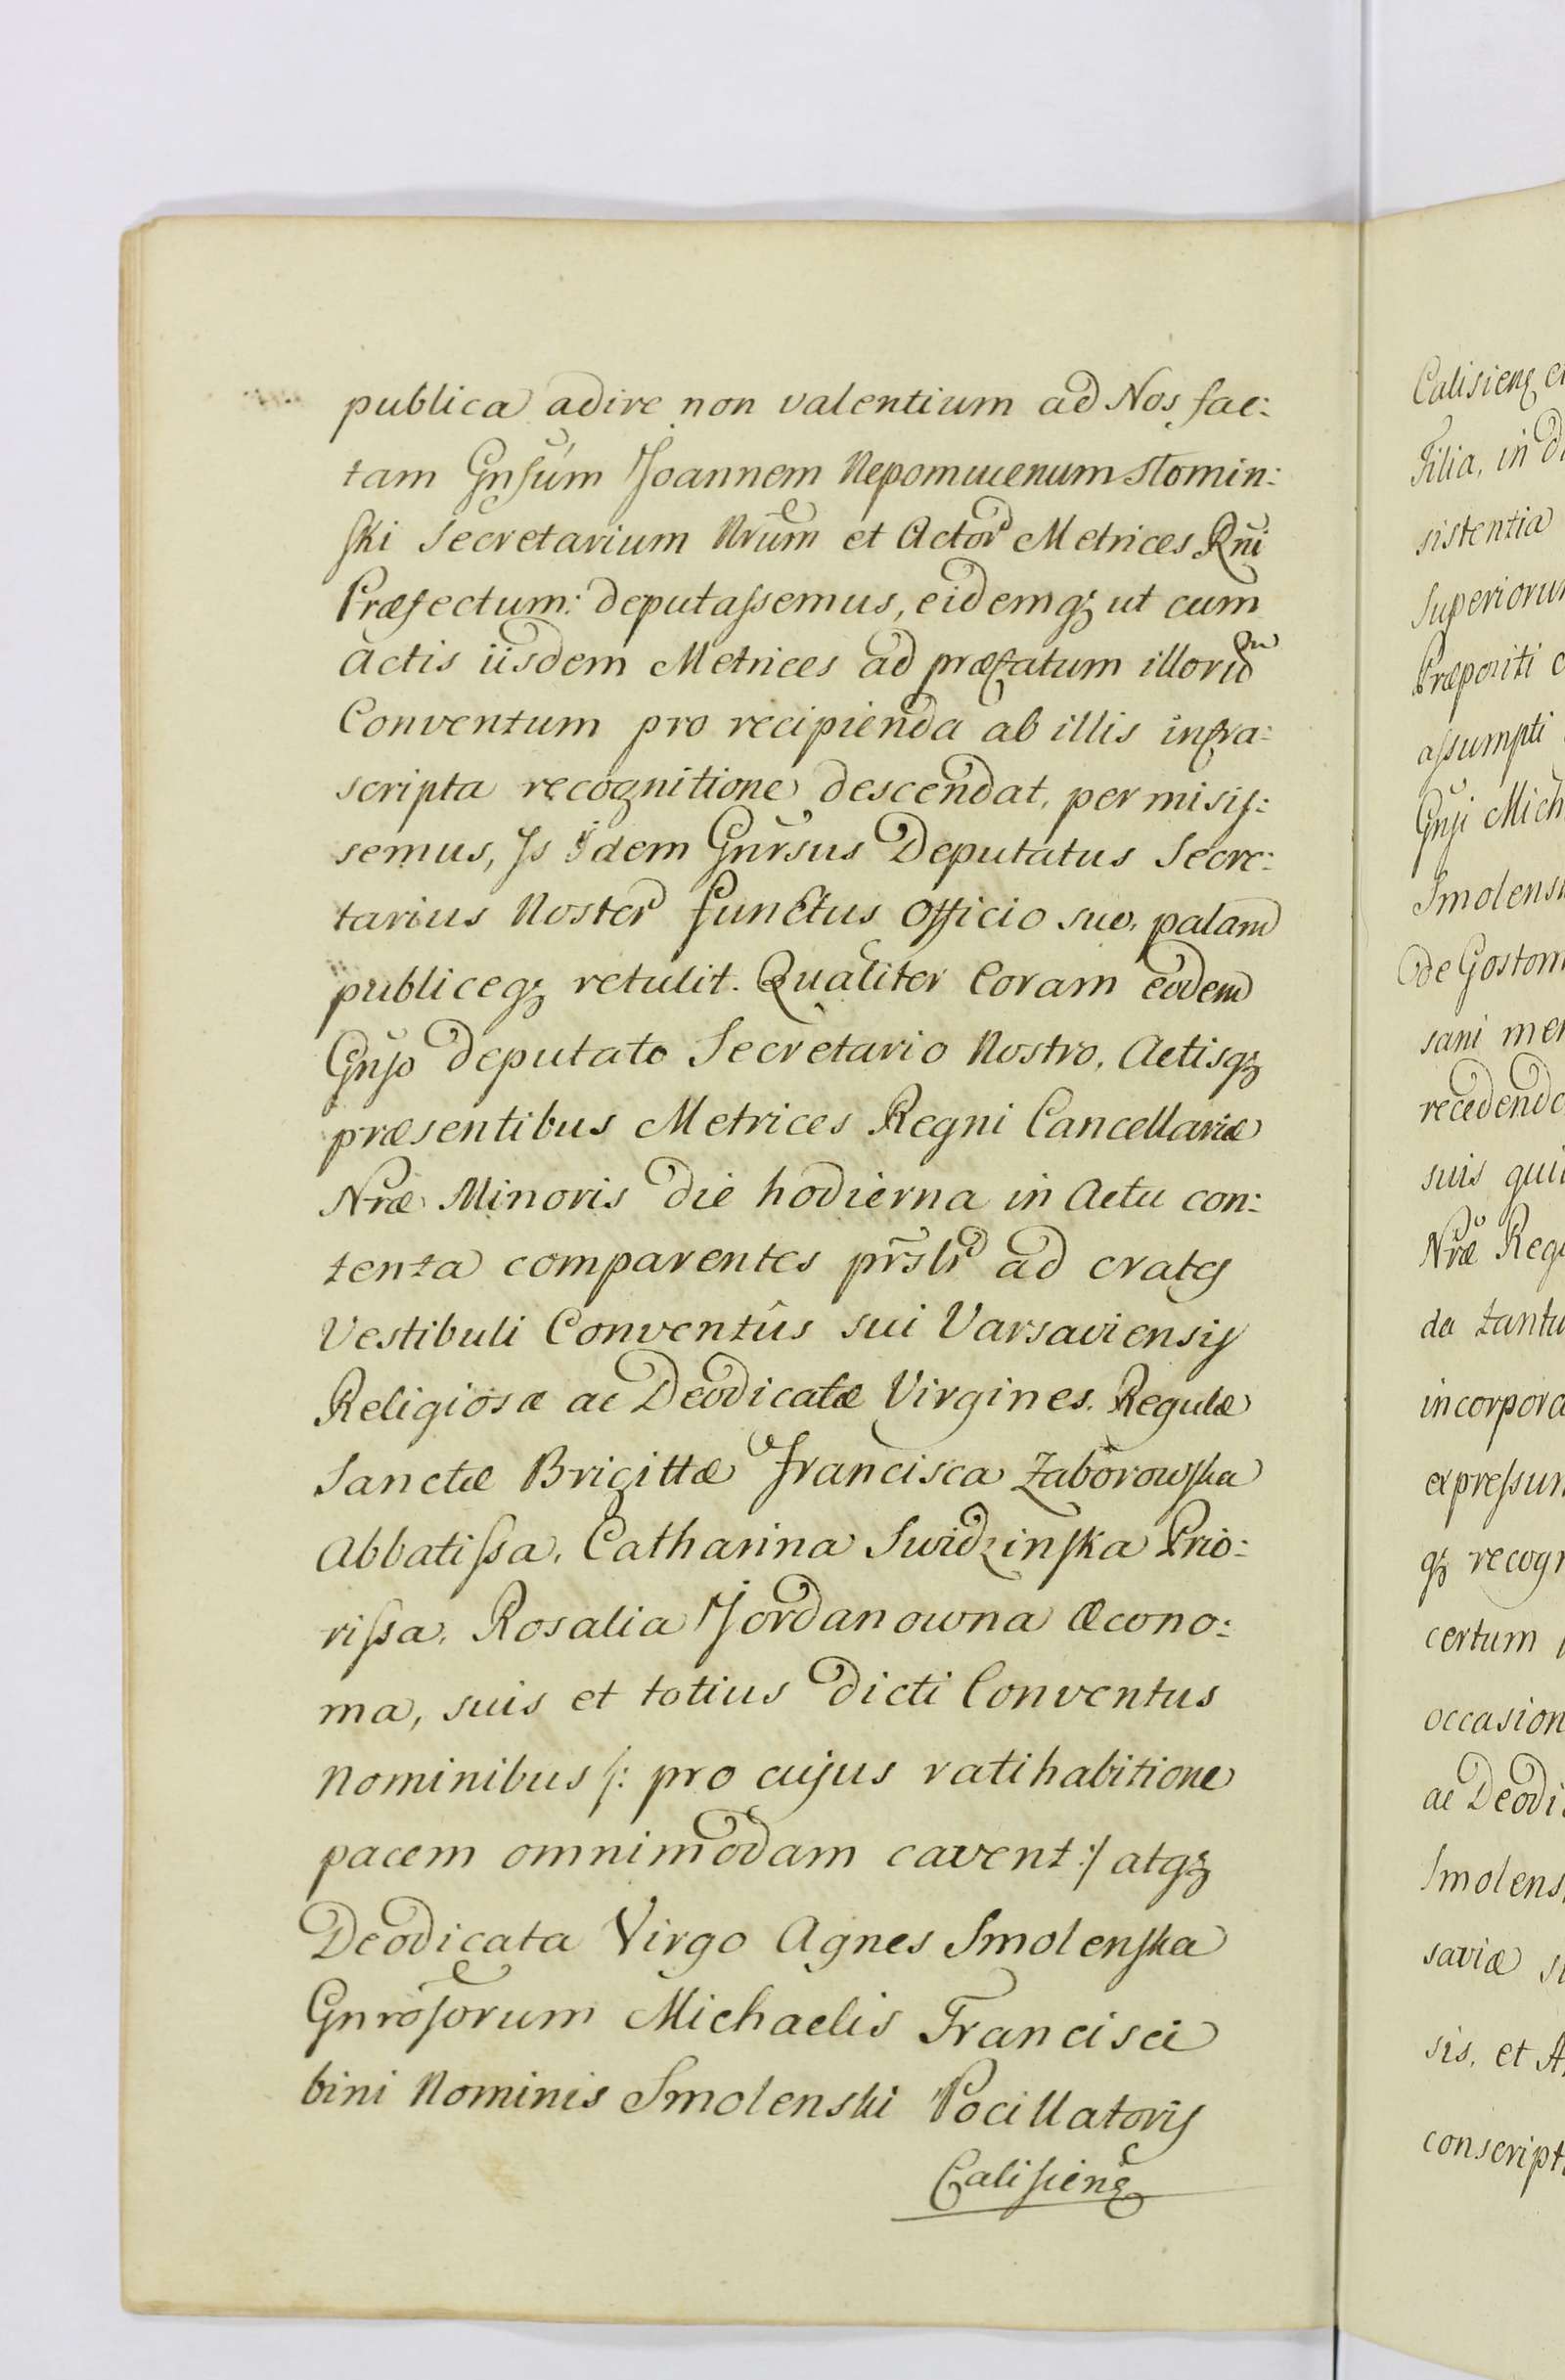 publica adire non valentium ad Nos fac:
tam Gnsum Joannem Nepomucenum Słomin:
ski Secretarium Nrum et Actor Metrices Rni
Præfectum: deputassemus, eidemqȝ ut cum
actis iisdem Metrices ad præfatum illorum
Conventum pro recipienda ab illis infra:
scripta recognitione descendat, permisis:
semus, Is idem Gnrsus Deputatus Secre:
tarius Noster functus officio suo, palam
publiceqȝ retulit. Qualiter Coram eodem
Gnso deputato Secretario Nostro, Actisqȝ
præsentibus Metrices Regni Cancellariæ
Nræ Minoris die hodierna in Actu con:
tenta comparentes prslr ad crates
Vestibuli Conventûs sui Varsaviensis
Religiosæ ac Deodicatæ Virgines Regulæ
Sanctæ Brigittæ Francisca Zaborowska
Abbatissa, Catharina Swidzinska Prio:
rissa, Rosalia Jordanowna Œcono:
ma, suis et totius dicti Conventus
Nominibus /: pro cujus ratihabitione
pacem omnimodam cavent :/ atqȝ
Deodicata Virgo Agnes Smolenska
Gnrosorum Michaelis Francisci
bini Nominis Smolenski Pocillatoris
Calisiens
Calisiens
Filia, in
sistentia
Superiorum
Præpositi
assumpti
Gnsi Mich
Smolensk
de Gostom
sani men
recedendo
suis qui
Nræ Reg
da tantu
incorpora
expressum
qȝ recogn
certum
occasion
ac Deodi
Smolens
saviæ
sis, et
conscript